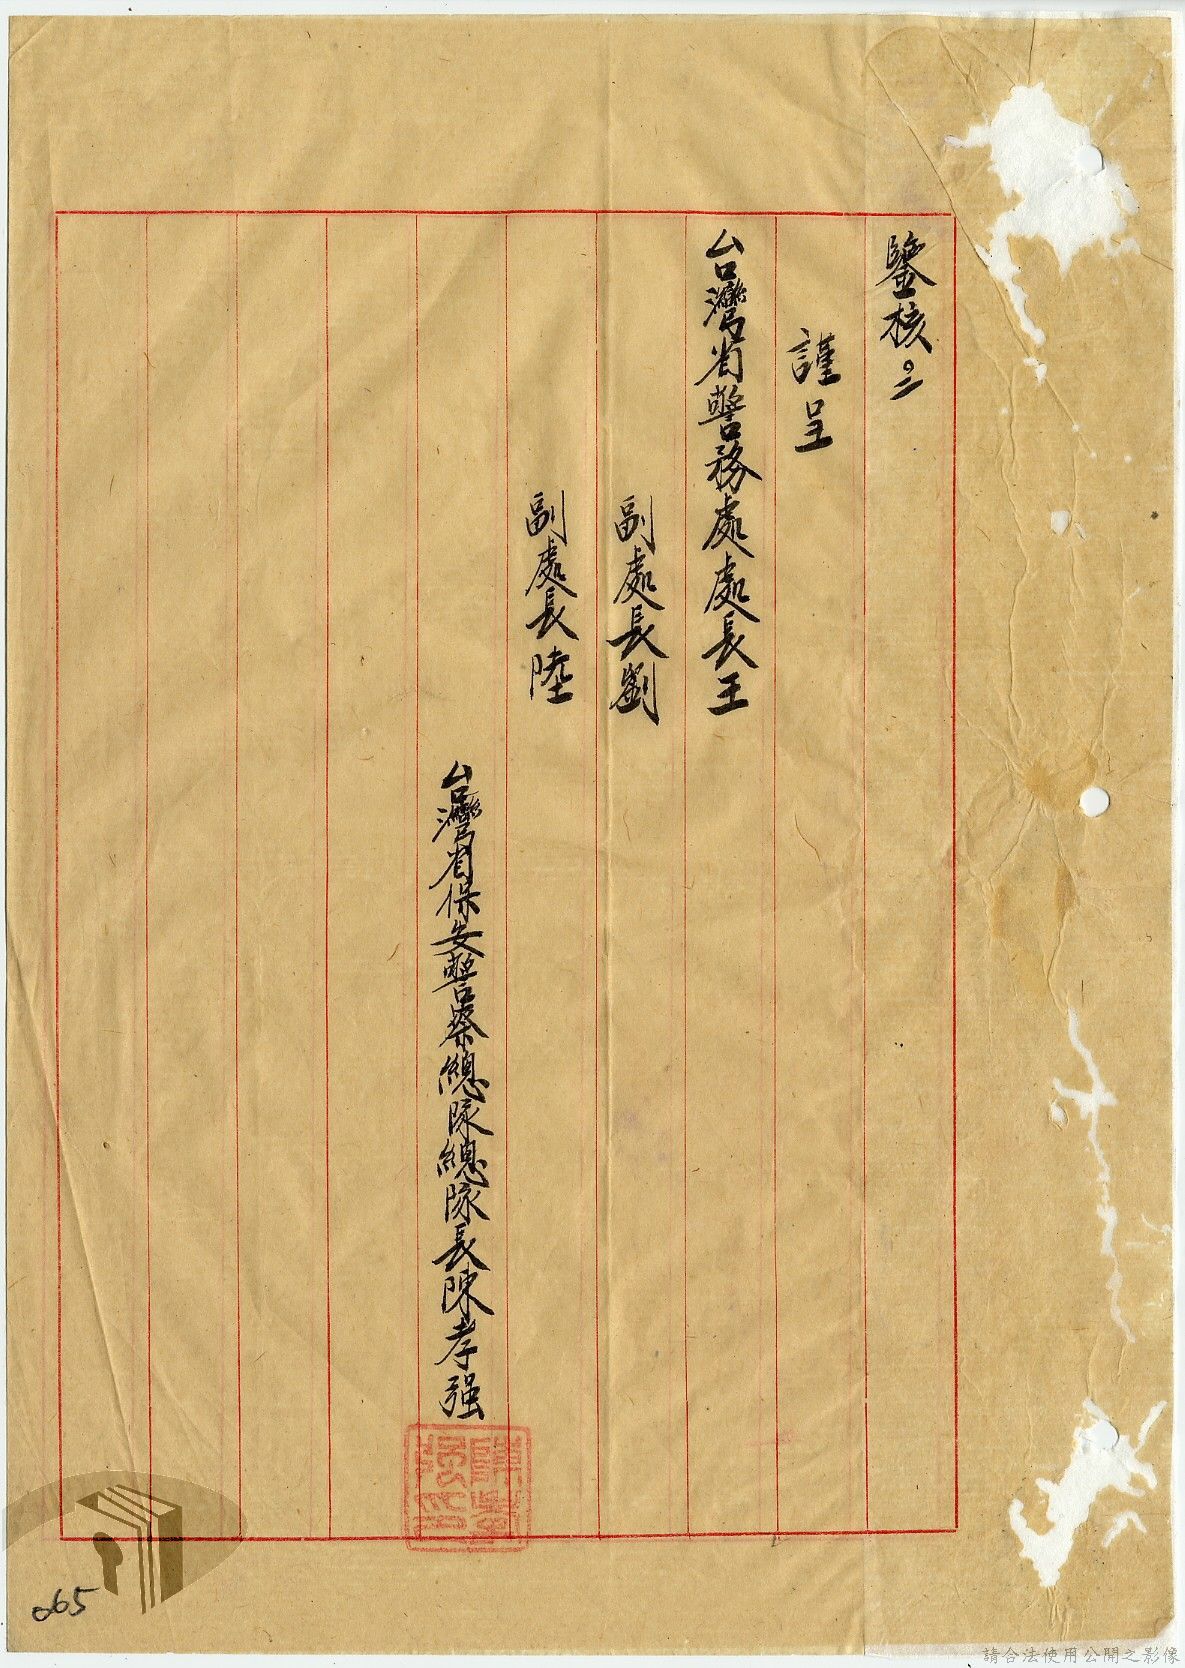 鑒核。
謹呈
台灣省警務處處長王
副處長劉
副處長陸
台灣省保安警察總隊總隊長陳孝强
陳孝強印
065
請合法使用公開之影像